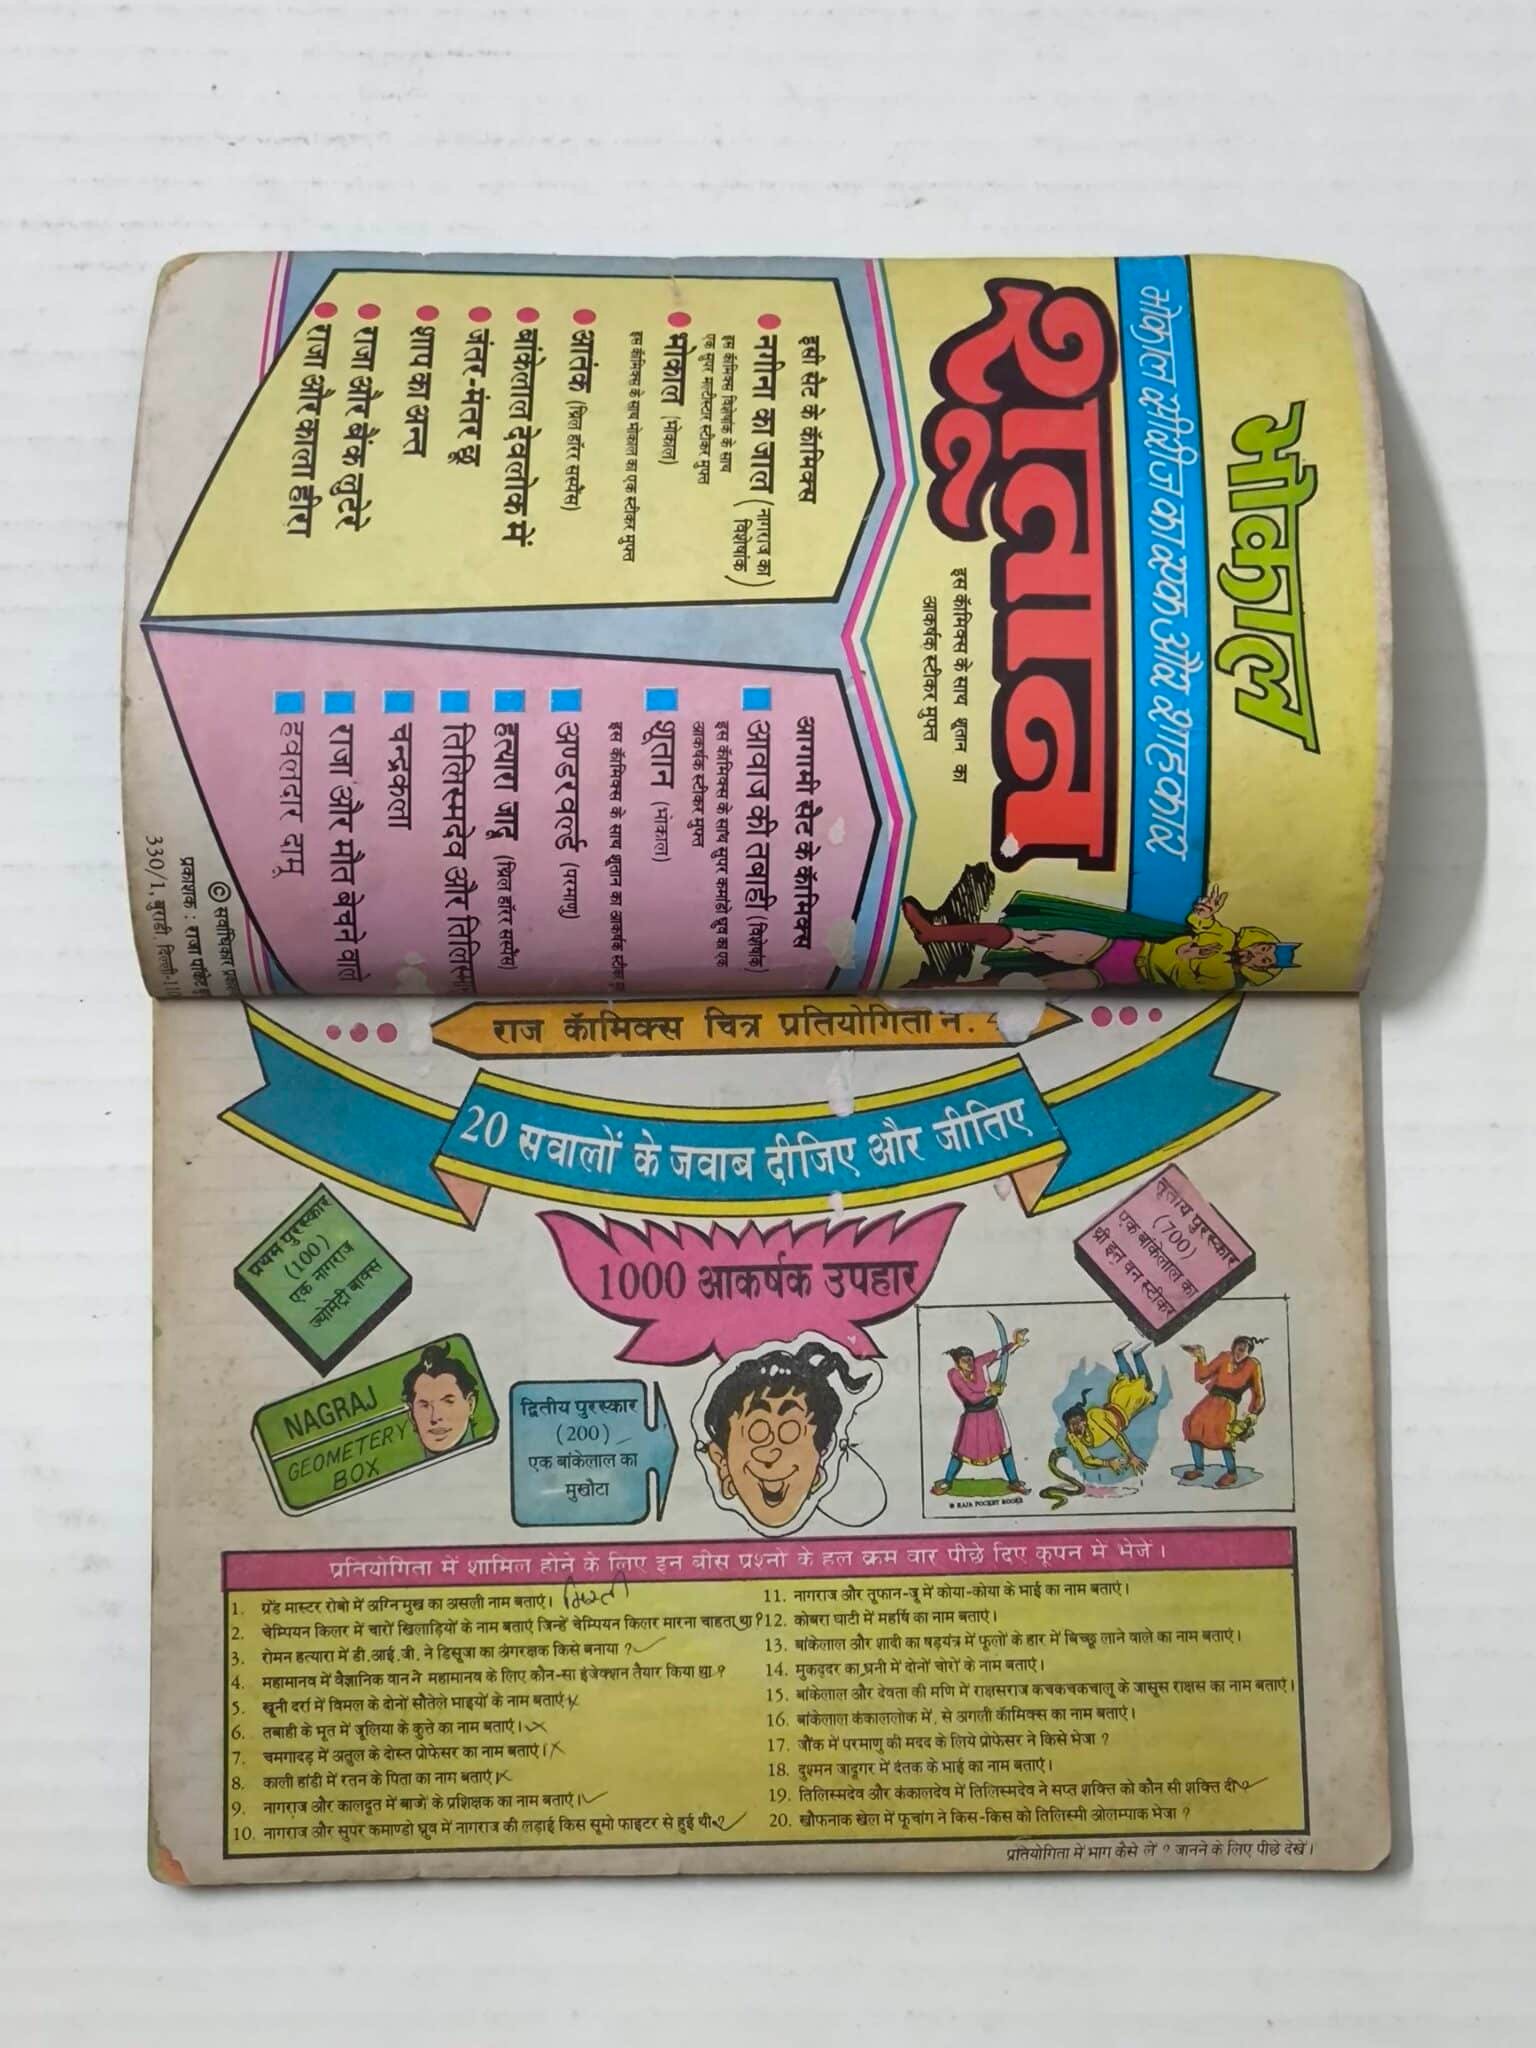 भोकाल
भोकाल सीरीज का एक और शाहकार
शूतान
इस कॉमिक्स के साथ शूतान का
आकर्षक स्टीकर मुफ्त
इसी सेट के कॉमिक्स
नगीना का जाल (नागराज का विशेषांक)
इस कॉमिक्स विशेषांक के साथ
एक सुपर मल्टीस्टार स्टीकर मुफ्त
भोकाल (भोकाल)
इस कॉमिक्स के साथ भोकाल का एक स्टीकर मुफ्त
आतंक (थ्रिल हॉरर सस्पैंस)
बांकेलाल देवलोक में
जंतर-मंतर छू
श्राप का अन्त
राजा और बैंक लुटेरे
राजा और काला हीरा
आगामी सैट के कॉमिक्स
आवाज की तबाही (विशेषांक)
इस कॉमिक्स के साथ सुपर कमांडो ध्रुव का एक
आकर्षक स्टीकर मुफ्त
शूतान (भोकाल)
इस कॉमिक्स के साथ शूतान का आकर्षक स्टीकर
अण्डरवर्ल्ड (परमाणु)
हत्यारा जादू (थ्रिल हॉरर सस्पैंस)
तिलिस्मदेव और
चन्द्रकला
राजा और मौत बेचने वाले
हवलदार दामू
© सर्वाधिकार
प्रकाशक : राजा पॉकेट
330/1, बुराड़ी, दिल्ली-
राज कॉमिक्स चित्र प्रतियोगिता नं.
20 सवालों के जवाब दीजिए और जीतिए
1000 आकर्षक उपहार
प्रथम पुरस्कार
(100)
एक नागराज
ज्योमेट्री बाक्स
तृतीय पुरस्कार
(700)
एक बांकेलाल का
थ्री इन वन स्टीकर
NAGRAJ
GEOMETERY
BOX
द्वितीय पुरस्कार
(200)
एक बांकेलाल का
मुखौटा
© RAJA POCKET BOOKS
प्रतियोगिता में शामिल होने के लिए इन बीस प्रश्नों के हल क्रम वार पीछे दिए कूपन में भेजें।
1. ग्रैंड मास्टर रोबो में अग्निमुख का असली नाम बताएं।
2. चेम्पियन किलर में चारों खिलाड़ियों के नाम बताएं जिन्हें चेम्पियन किलर मारना चाहता था ?
3. रोमन हत्यारा में डी.आई.जी. ने डिसूजा का अंगरक्षक किसे बनाया ?
4. महामानव में वैज्ञानिक वान ने महामानव के लिए कौन-सा इंजेक्शन तैयार किया था ?
5. खूनी दर्रा में विमल के दोनों सौतेले भाइयों के नाम बताएं।
6. तबाही के भूत में जूलिया के कुत्ते का नाम बताएं।
7. चमगादड़ में अतुल के दोस्त प्रोफेसर का नाम बताएं।
8. काली हांडी में रतन के पिता का नाम बताएं।
9. नागराज और कालदूत में बाजों के प्रशिक्षक का नाम बताएं।
10. नागराज और सुपर कमाण्डो ध्रुव में नागराज की लड़ाई किस सूमो फाइटर से हुई थी ?
11. नागराज और तूफान-जू में कोया-कोया के भाई का नाम बताएं।
12. कोबरा घाटी में महर्षि का नाम बताएं।
13. बांकेलाल और शादी का षड़यंत्र में फूलों के हार में बिच्छू लाने वाले का नाम बताएं।
14. मुकद्दर का धनी में दोनों चोरों के नाम बताएं।
15. बांकेलाल और देवता की मणि में राक्षसराज कचकचकचालू के जासूस राक्षस का नाम बताएं।
16. बांकेलाल कंकाललोक में, से अगली कॉमिक्स का नाम बताएं।
17. जोंक में परमाणु की मदद के लिये प्रोफेसर ने किसे भेजा ?
18. दुश्मन जादूगर में दंतक के भाई का नाम बताएं।
19. तिलिस्मदेव और कंकालदेव में तिलिस्मदेव ने सप्त शक्ति को कौन सी शक्ति दी
20. खौफनाक खेल में फूचांग ने किस-किस को तिलिस्मी ओलम्पाक भेजा ?
प्रतियोगिता में भाग कैसे लें ? जानने के लिए पीछे देखें।